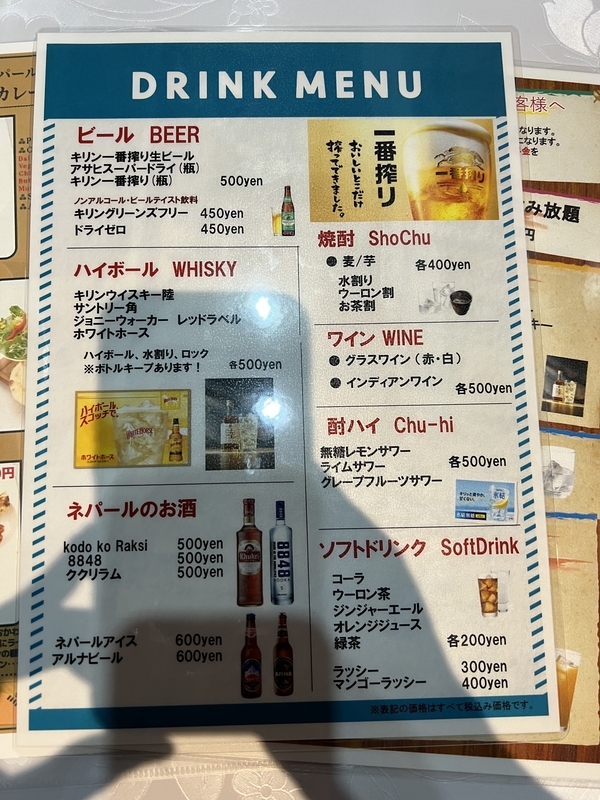 DRINK MENU
ビール BEER
キリン一番搾り生ビール
アサヒスーパードライ(瓶)
キリン一番搾り(瓶) 500yen
ノンアルコール・ビールテイスト飲料
キリングリーンズフリー 450yen
ドライゼロ 450yen
一番搾り
おいしいとこだけ
搾ってできました。
ハイボール WHISKY
キリンウイスキー陸
サントリー角
ジョニーウォーカー レッドラベル
ホワイトホース
ハイボール、水割り、ロック
※ボトルキープあります! 各500yen
ハイボール
スコッチで。
WHITE HORSE
ホワイトホース
ネパールのお酒
kodo ko Raksi 500yen
8848 500yen
ククリラム 500yen
Khukri
8848
ネパールアイス 600yen
アルナビール 600yen
焼酎 ShoChu
麦/芋 各400yen
水割り
ウーロン割
お茶割
ワイン WINE
グラスワイン(赤・白)
インディアンワイン 各500yen
酎ハイ Chu-hi
無糖レモンサワー
ライムサワー 各500yen
グレープフルーツサワー
ソフトドリンク SoftDrink
コーラ
ウーロン茶
ジンジャーエール
オレンジジュース
緑茶 各200yen
ラッシー 300yen
マンゴーラッシー 400yen
※表記の価格はすべて税込み価格です。
客様へ
なります。
になります。
み放題
円
キー